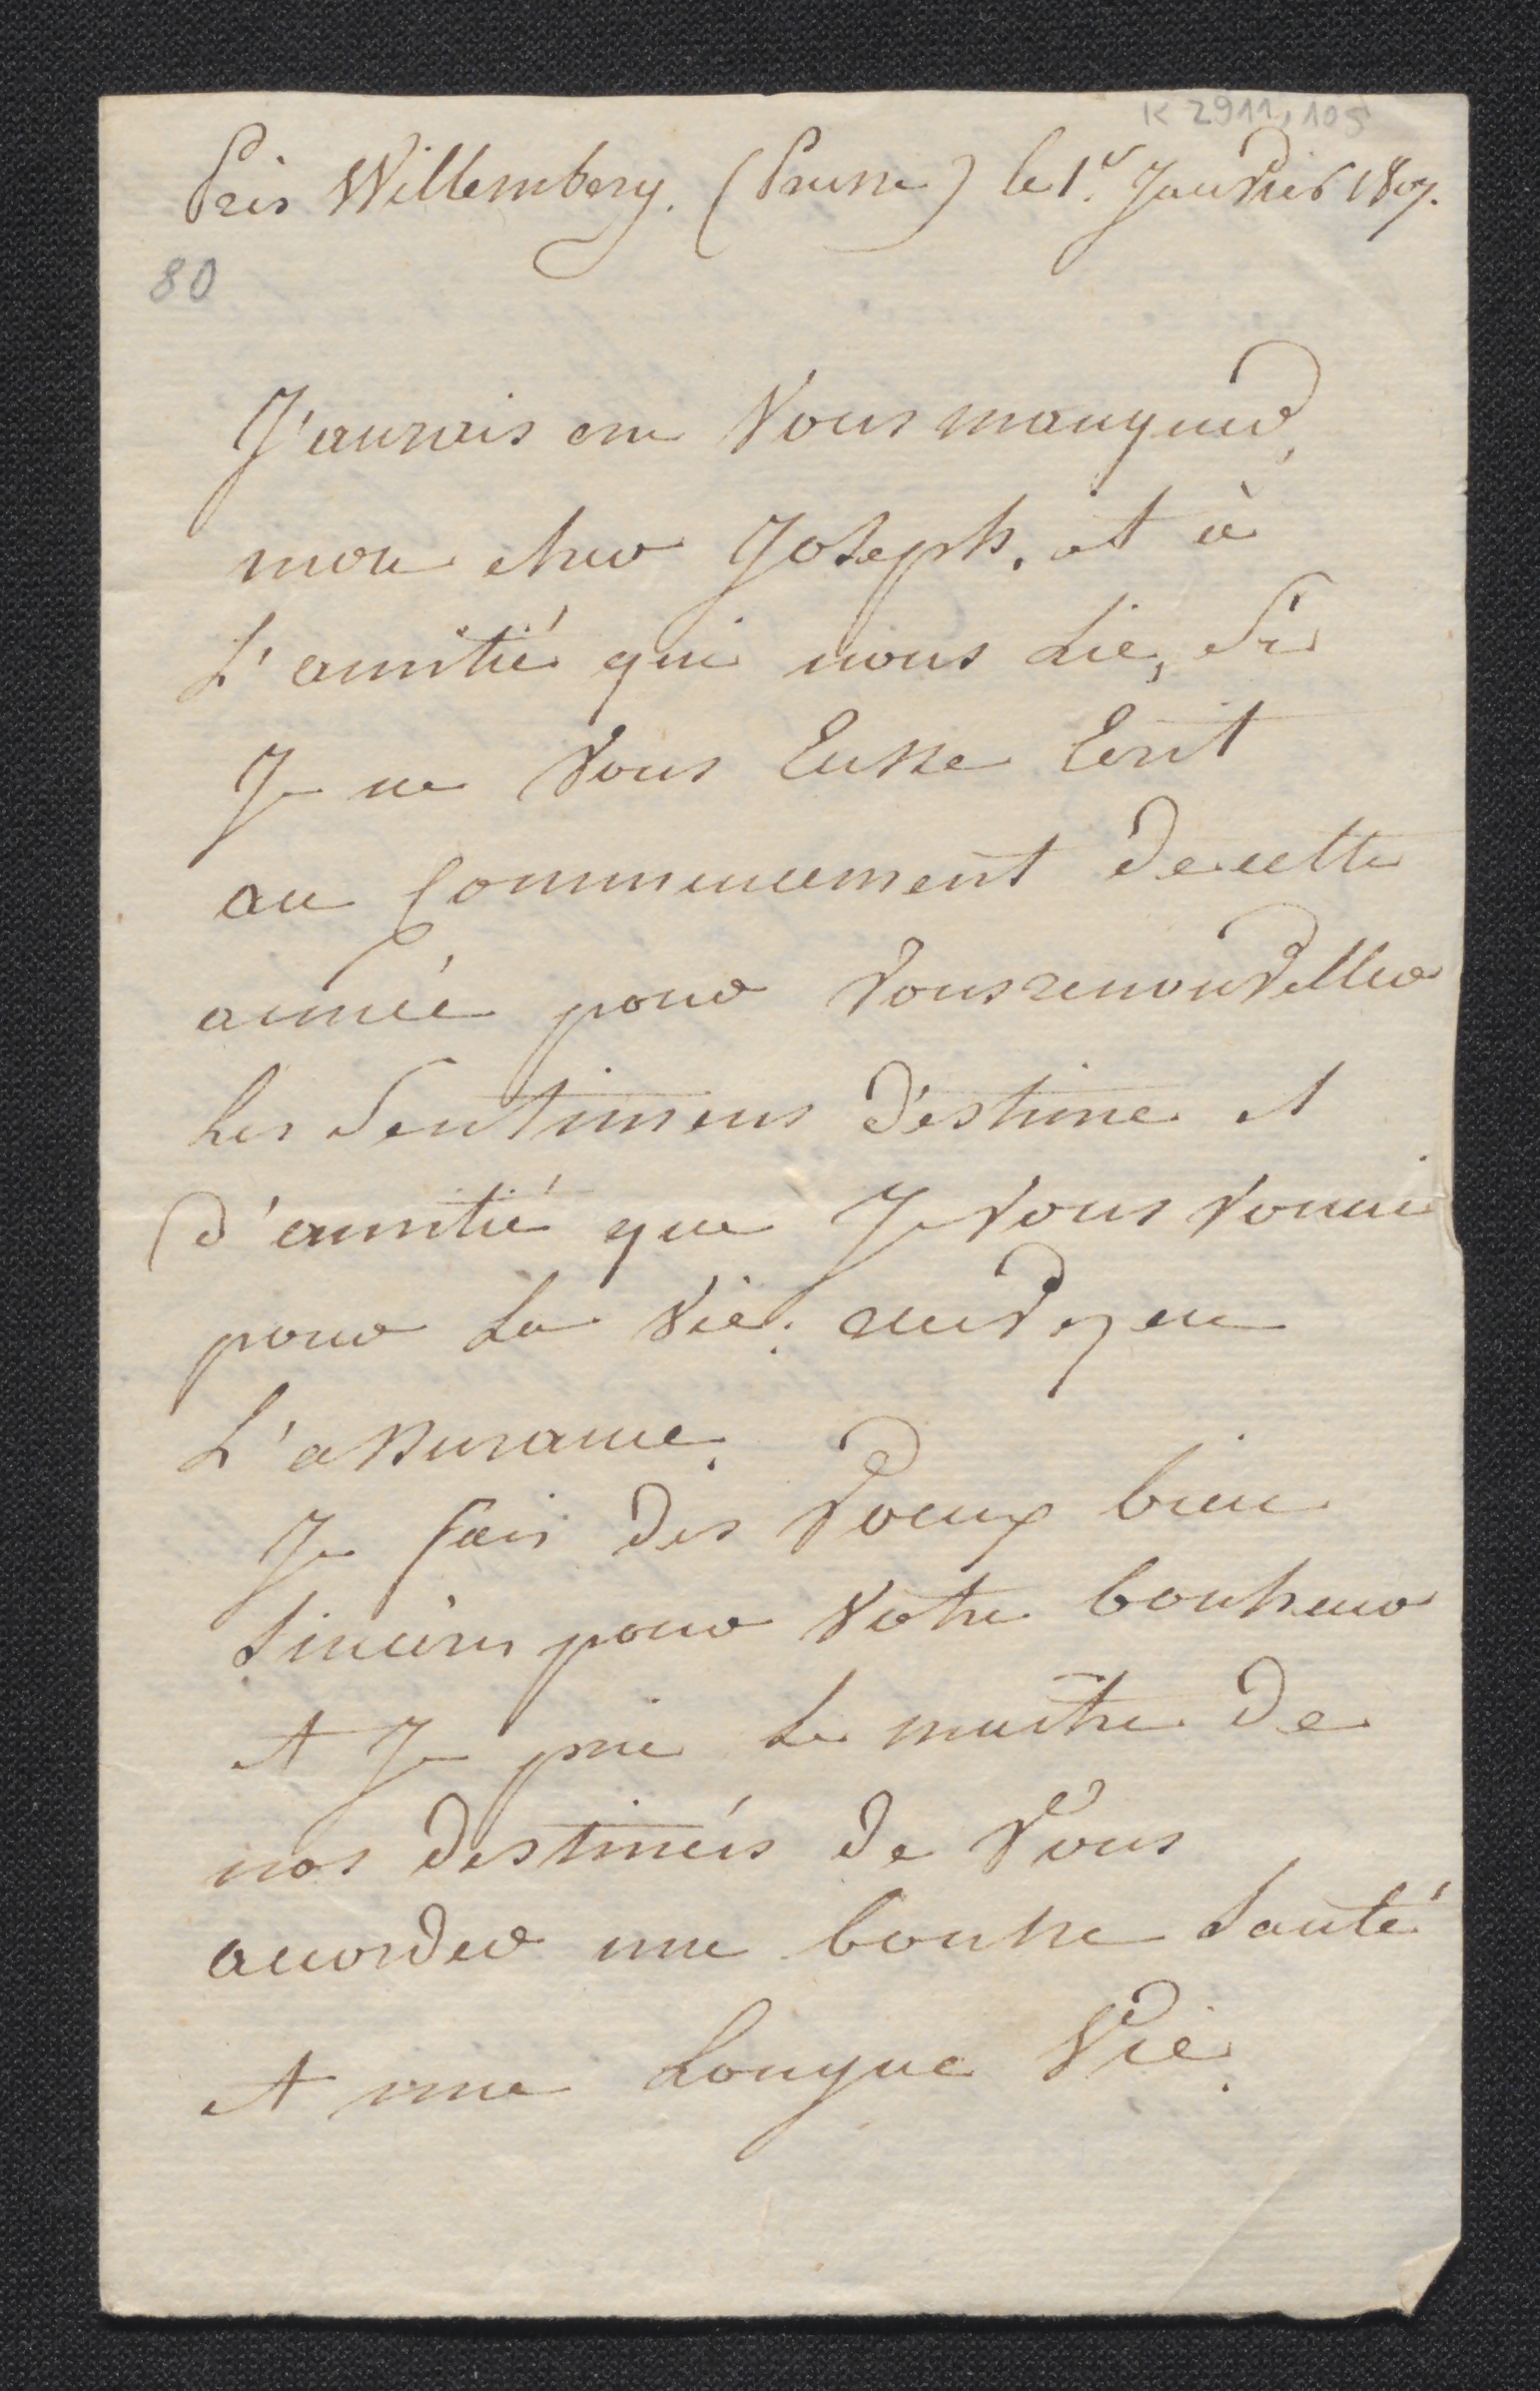 K 2911, 105
Près Willemberg. (Prusse) le 1.r Janvier 1807.
80
J'aurais cru Vous manquer,
mon cher Joseph, et à
L'amitié qui nous Lie, Si
Je ne Vous Eusse Ecrit
au Commencement de cette
année pour Vous renouveller
Les Sentimens d'estime et
d'amitié que Je Vous Vouai
pour La Vie.
L'assurance.
Je fais des Voeux bien
Sincères pour Votre bonheur
et Je prie Le maitre de
nos destinées de Vous
accorder une bonne Santé
et une Longue Vie.